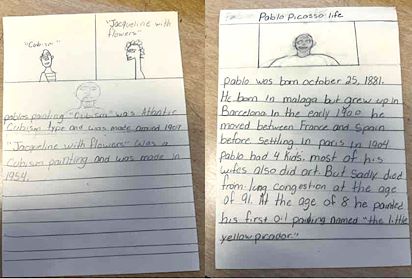 "Cubism"
"Jacqueline with
flowers"
pablos painting "Cubism" was Atlantic
Cubism type and was made around 1907.
"Jacqueline with Flowers" was a
Cubism painting and was made in
1954.
Pablo Picasso life
Pablo was born october 25, 1881.
He born in malaga but grew up in
Barcelona In the early 1900 he
moved between France and Spain
before settling in paris in 1904
pablo had 4 kids. most of his
wifes also did art. But sadly died
from lung congestion at the age
of 91. At the age of 8 he painted
his first oil painting named "the little
yellow picador."